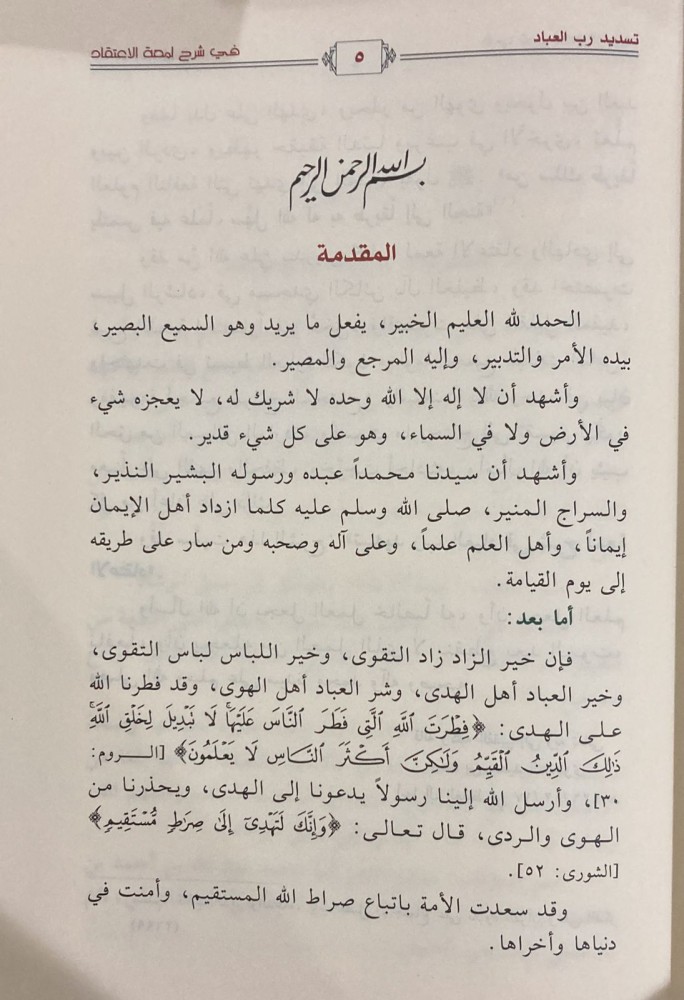 تسديد رب العباد
٥
في شرح لمعة الاعتقاد
بسم الله الرحمن الرحيم
المقدمة
الحمد لله العليم الخبير، يفعل ما يريد وهو السميع البصير،
بيده الأمر والتدبير، وإليه المرجع والمصير.
وأشهد أن لا إله إلا الله وحده لا شريك له، لا يعجزه شيء
في الأرض ولا في السماء، وهو على كل شيء قدير.
وأشهد أن سيدنا محمداً عبده ورسوله البشير النذير،
والسراج المنير، صلى الله وسلم عليه كلما ازداد أهل الإيمان
إيماناً، وأهل العلم علماً، وعلى آله وصحبه ومن سار على طريقه
إلى يوم القيامة.
أما بعد:
فإن خير الزاد زاد التقوى، وخير اللباس لباس التقوى،
وخير العباد أهل الهدى، وشر العباد أهل الهوى، وقد فطرنا الله
على الهدى: ﴿فِطْرَتَ اللَّهِ الَّتِي فَطَرَ النَّاسَ عَلَيْهَا ۚ لَا تَبْدِيلَ لِخَلْقِ اللَّهِ ۚ
ذَٰلِكَ الدِّينُ الْقَيِّمُ وَلَٰكِنَّ أَكْثَرَ النَّاسِ لَا يَعْلَمُونَ﴾ [الروم:
٣٠]، وأرسل الله إلينا رسولاً يدعونا إلى الهدى، ويحذرنا من
الهوى والردى، قال تعالى: ﴿وَإِنَّكَ لَتَهْدِي إِلَىٰ صِرَاطٍ مُّسْتَقِيمٍ﴾
[الشورى: ٥٢].
وقد سعدت الأمة باتباع صراط الله المستقيم، وأمنت في
دنياها وأخراها.